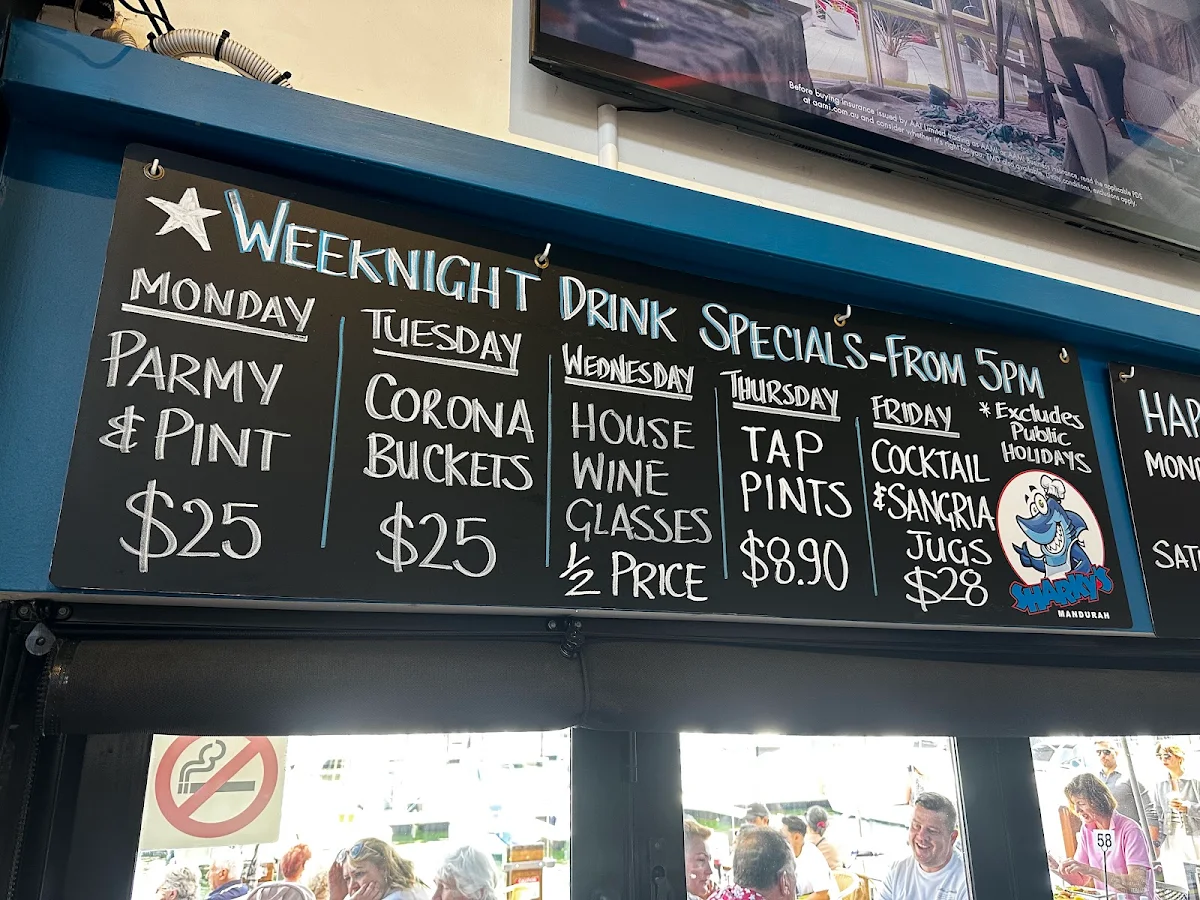 Before buying insurance issued by AAI Limited trading as AAMI
at aami.com.au and consider whether it's right for you. TMD also available.
WEEKNIGHT DRINK SPECIALS - FROM 5PM
MONDAY
PARMY
& PINT
$25
TUESDAY
CORONA
BUCKETS
$25
WEDNESDAY
HOUSE
WINE
GLASSES
1/2 PRICE
THURSDAY
TAP
PINTS
$8.90
FRIDAY
COCKTAIL
& SANGRIA
JUGS
$28
* Excludes
Public
HOLIDAYS
SHARKY'S
MANDURAH
HAP
MON
SAT
58